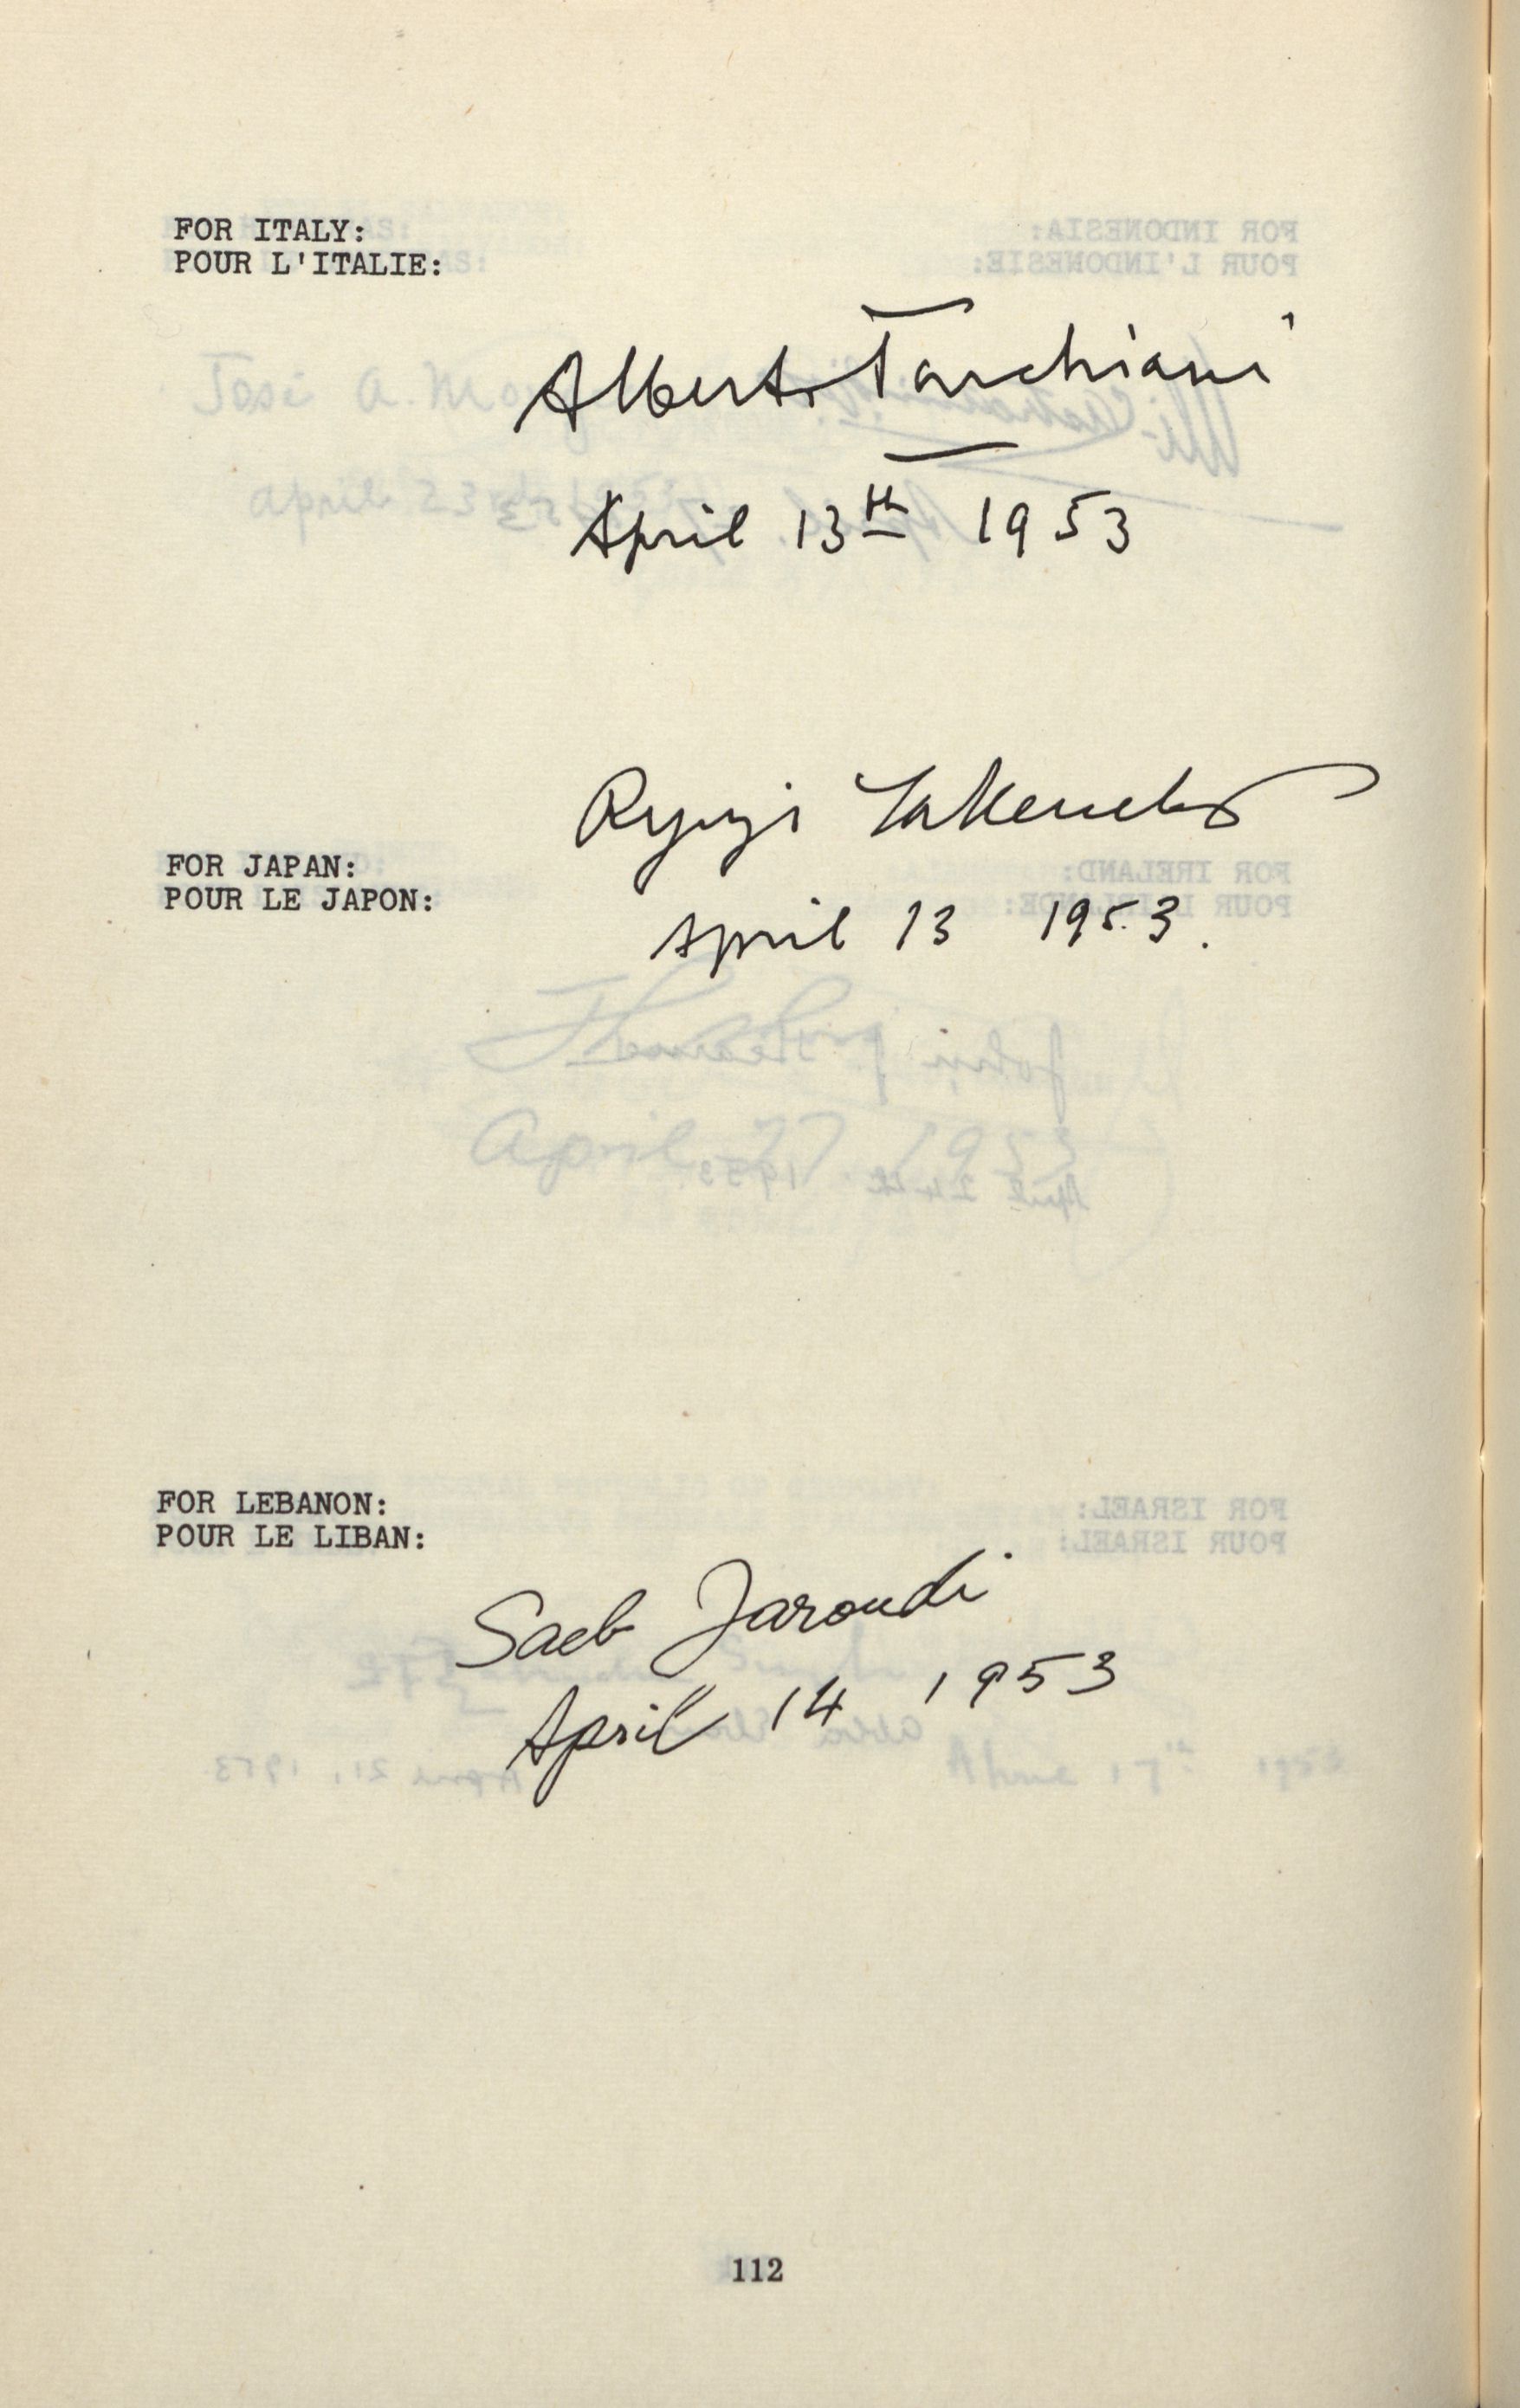 FOR ITALY:
POUR L'ITALIE:
Alberto Tarchiani
April 13th 1953
Ryuji Takeuchi
FOR JAPAN:
POUR LE JAPON:
April 13 1953.
FOR LEBANON:
POUR LE LIBAN:
Saeb Jaroudi
April 14 1953
112